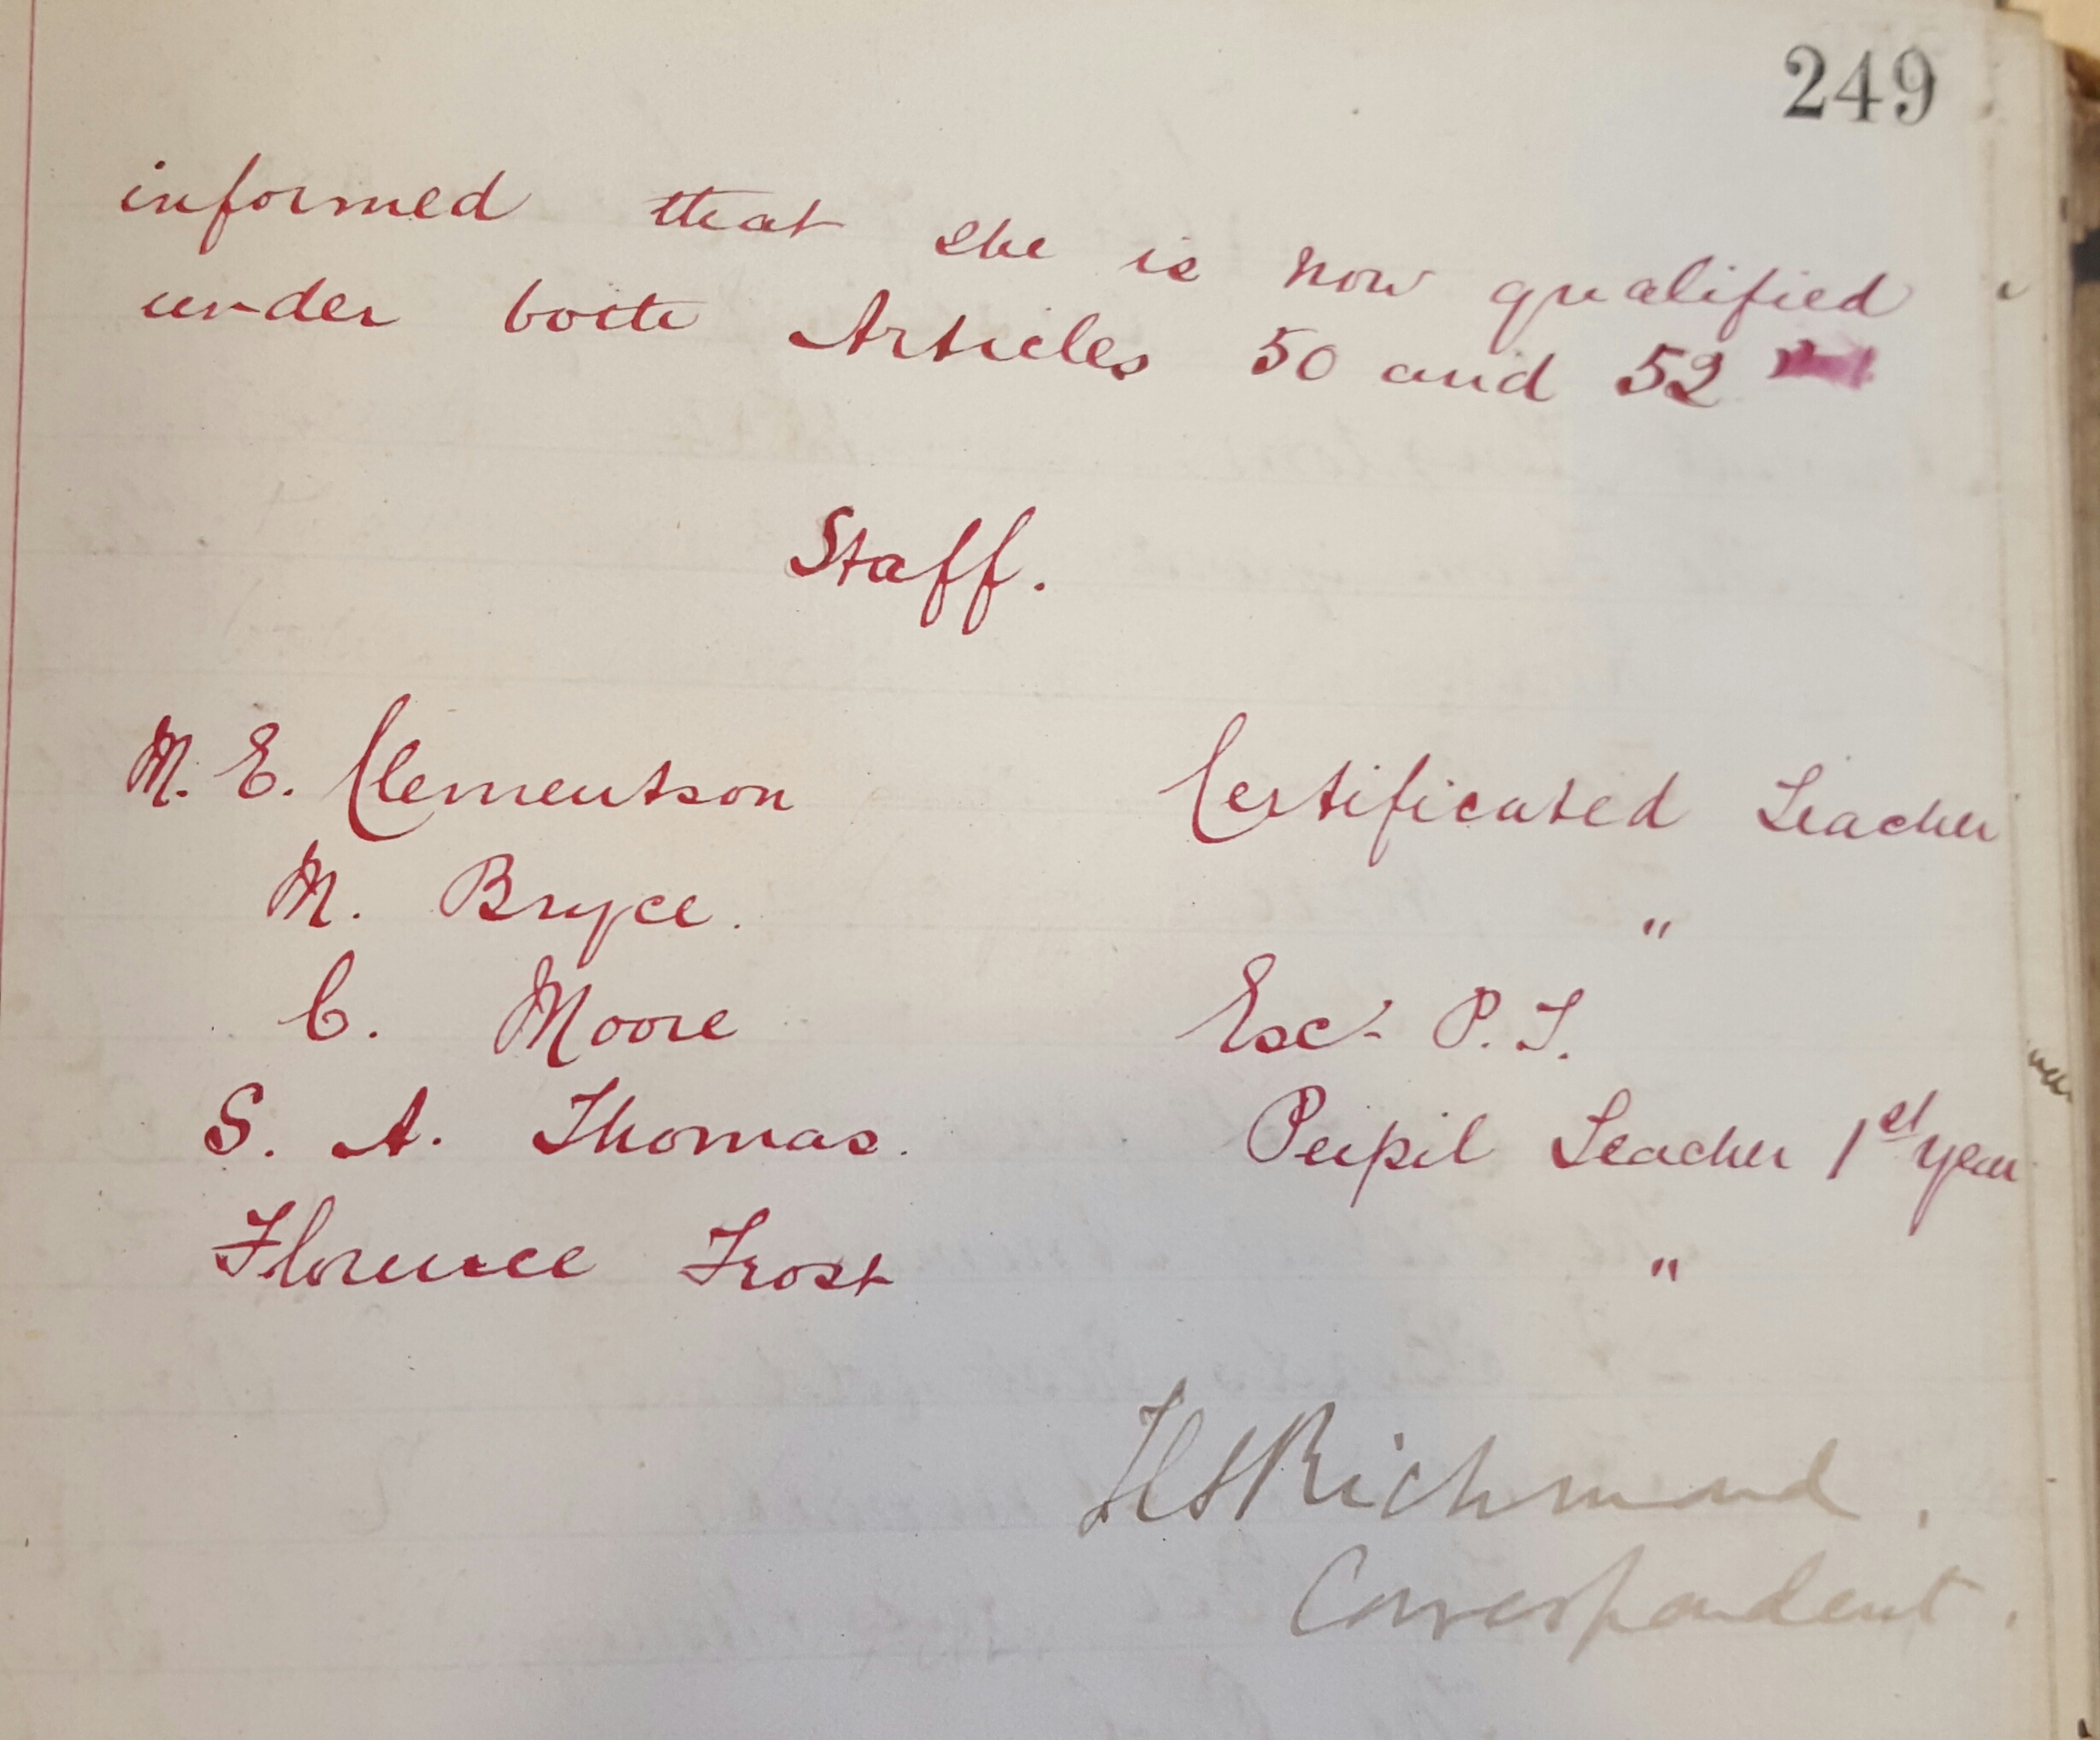 249
informed that she is now qualified
under both Articles 50 and 52
Staff.
M. E. Clementson Certificated Teacher
M. Bryce. "
C. Moore Ex. P.T.
S. A. Thomas. Pupil Teacher 1st year
Florence Frost "
Richmond.
Correspondent.